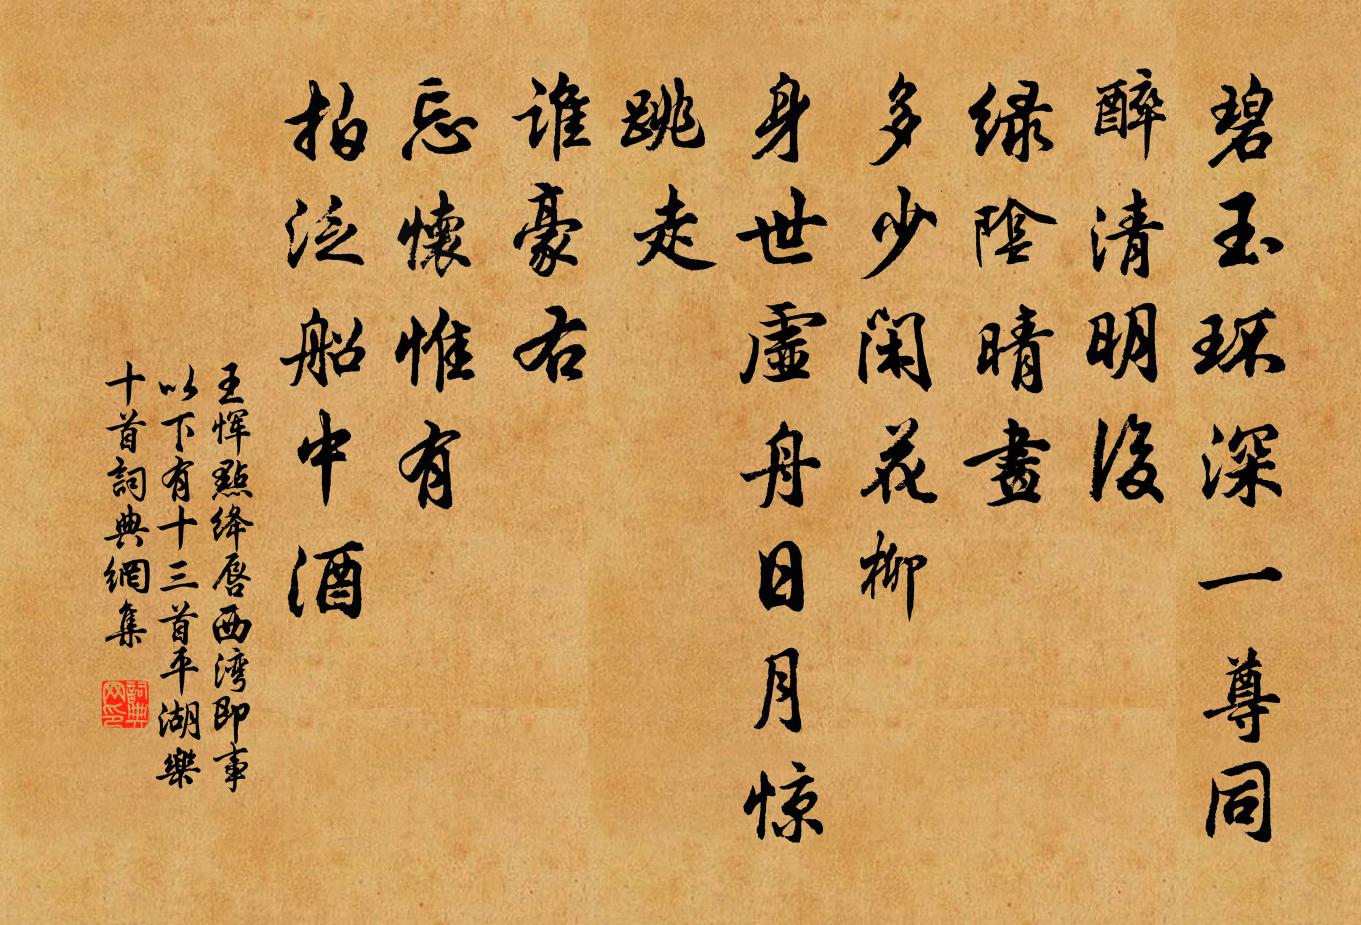 碧玉环深一尊同
醉清明後
绿陰晴晝
多少闲花柳
身世虛舟日月惊
跳走
谁豪右
忘懷惟有
拍泛船中酒
王惲點绛唇西湾即事
以下有十三首平湖樂
十首詞典網集
詞典网印